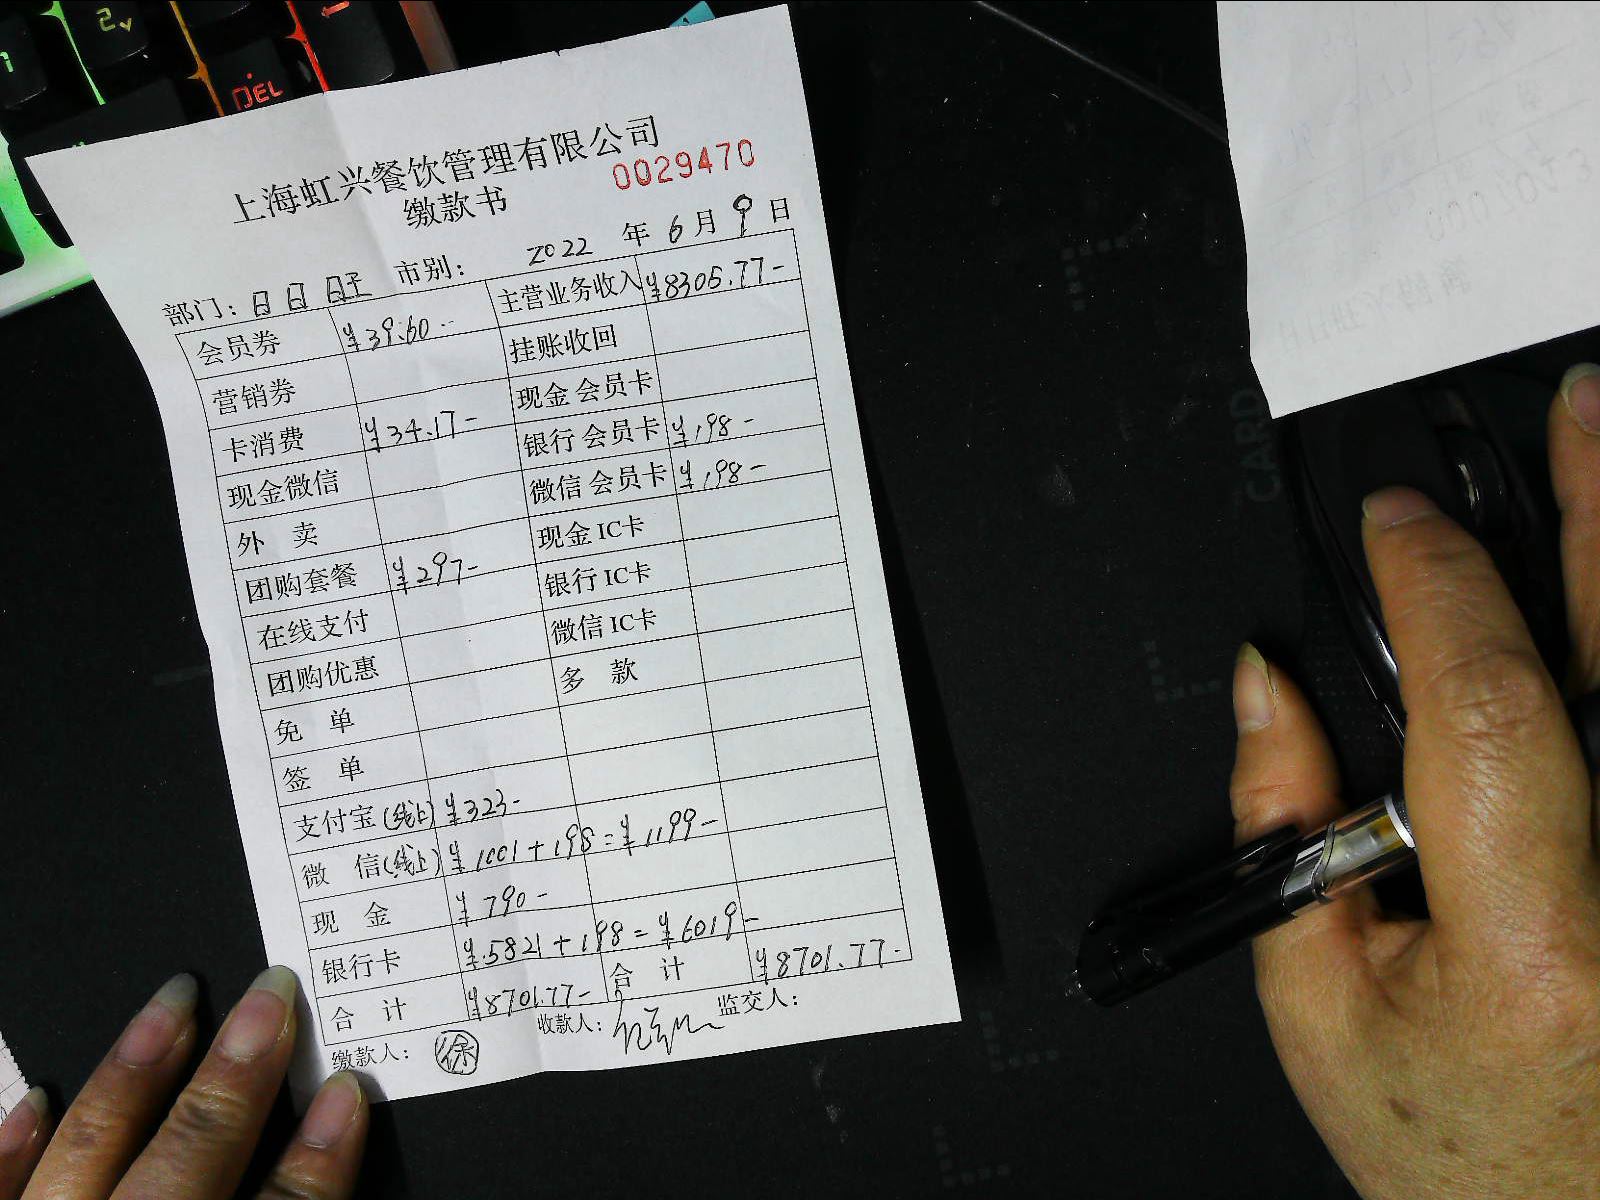 2
DEL
上海虹兴餐饮管理有限公司
缴款书 0029470
部门：日日 市别： 2022 年 6 月 9 日
会员券 ¥39.60- 主营业务收入 ¥8305.77-
营销券 挂账收回
卡消费 ¥34.17- 现金 会员卡
现金微信 银行 会员卡 ¥198-
外 卖 微信 会员卡 ¥198-
团购套餐 ¥297- 现金 IC卡
在线支付 银行 IC卡
团购优惠 微信 IC卡
免 单 多 款
签 单
支付宝(线上) ¥323-
微 信(线上) ¥1001+198=¥1199-
现 金 ¥790-
银行卡 ¥5821+198=¥6019-
合 计 ¥8701.77- 合 计 ¥8701.77-
缴款人： 徐 收款人： 监交人：
CARD